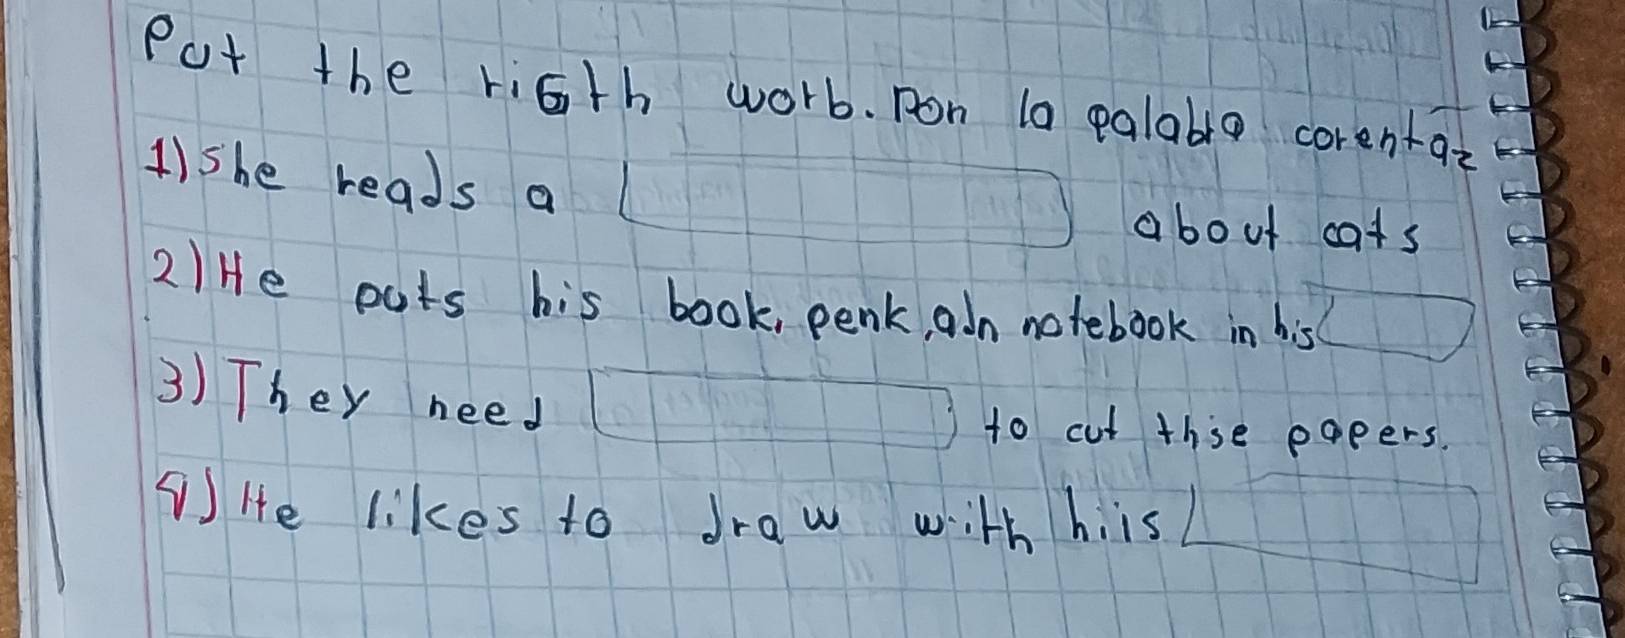 Put the riGth worb. Pon la palabla corenta
1) She reads a about cats
2) He puts his book, penk, adn notebook in his
3) They need to cut thise papers.
4) He likes to draw with hiis